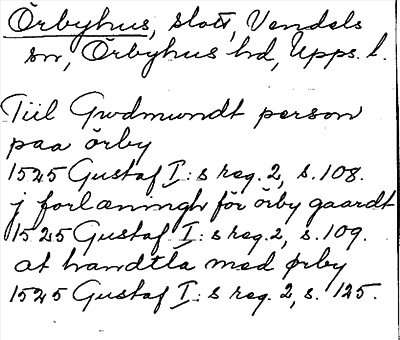 Örbyhus, slott, Vendels
sn, Örbyhus hd, Upps. l.
Tiil Gwdmundt person
paa örby
1525 Gustaf I:s reg. 2, s. 108.
j forlæningh för örby gaardt
1525 Gustaf I:s reg. 2, s. 109.
at handtla med ørby
1525 Gustaf I:s reg. 2, s. 125.